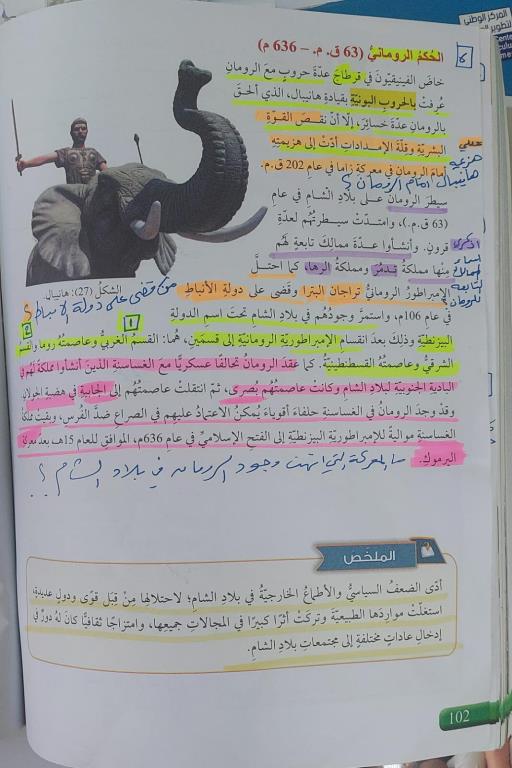 المركز الوطني
لتطوير
Center
6
الحُكمُ الرومانيُّ (63 ق. م. – 636 م)
خاضَ الفينيقيّونَ في قرطاجَ عدّةَ حروبٍ معَ الرومانِ
عُرفتْ بالحروبِ البونيّةِ بقيادةِ هانيبال، الذي ألحقَ
بالرومانِ عدّةَ خسائرَ، إلّا أنّ نقصَ القوّةِ
عللي
البشريّةِ وقلّةَ الإمداداتِ أدّتْ إلى هزيمتِهِ
هزيمة
أمامَ الرومانِ في معركةِ زاما في عام 202 ق.م.
هانيبال أمام الرومان؟
سيطرَ الرومانُ على بلادِ الشامِ في عامِ
(63 ق.م.)، وامتدّتْ سيطرتُهُم لعدةِ
قرونٍ. وأنشأوا عدّةَ ممالكَ تابعةٍ لهُم
اذكري
اسماء
الممالك
التابعة
للرومان؟
منْها مملكةُ تدمُرَ ومملكةُ الرها، كما احتلَّ
الإمبراطورُ الرومانيُّ تراجان البترا وقضى على دولةِ الأنباطِ
الشكلُ (27): هانيبال
من قضى على دولة الأنباط؟
في عامِ 106م، واستمرَّ وجودُهُم في بلادِ الشامِ تحتَ اسمِ الدولةِ
1
2
البيزنطيّةِ وذلكَ بعدَ انقسامِ الإمبراطوريّةِ الرومانيّةِ إلى قسمَينِ، هُما: القسمُ الغربيُّ وعاصمتُهُ روما والقسمُ
الشرقيُّ وعاصمتُهُ القسطنطينيّةُ. كما عقدَ الرومانُ تحالفًا عسكريًّا معَ الغساسنةِ الذينَ أنشأوا مملكةً لهُم في
الباديةِ الجنوبيّةِ لبلادِ الشامِ وكانتْ عاصمتُهُم بُصرى، ثمَّ انتقلتْ عاصمتُهُم إلى الجابيةِ في هضبةِ الجولانِ.
وقد وجدَ الرومانُ في الغساسنةِ حلفاءَ أقوياءَ يُمكنُ الاعتمادُ عليهِم في الصراعِ ضدَّ الفُرسِ، وبقيتْ مملكةُ
الغساسنةِ مواليةً للإمبراطوريّةِ البيزنطيّةِ إلى الفتحِ الإسلاميِّ في عامِ 636م، الموافقِ للعامِ 15هـ بعدَ معركةِ
اليرموكِ.
ما المعركة التي انتهت وجود الرومان في بلاد الشام؟؟
الملخّص
أدّى الضعفُ السياسيُّ والأطماعُ الخارجيّةُ في بلادِ الشامِ؛ لاحتلالِها مِنْ قِبَلِ قوًى ودولٍ عديدةٍ،
استغلّتْ مواردَها الطبيعيّةَ وتركتْ أثرًا كبيرًا في المجالاتِ جميعِها، وامتزاجًا ثقافيًّا كانَ لهُ دورٌ في
إدخالِ عاداتٍ مختلفةٍ إلى مجتمعاتِ بلادِ الشامِ.
102